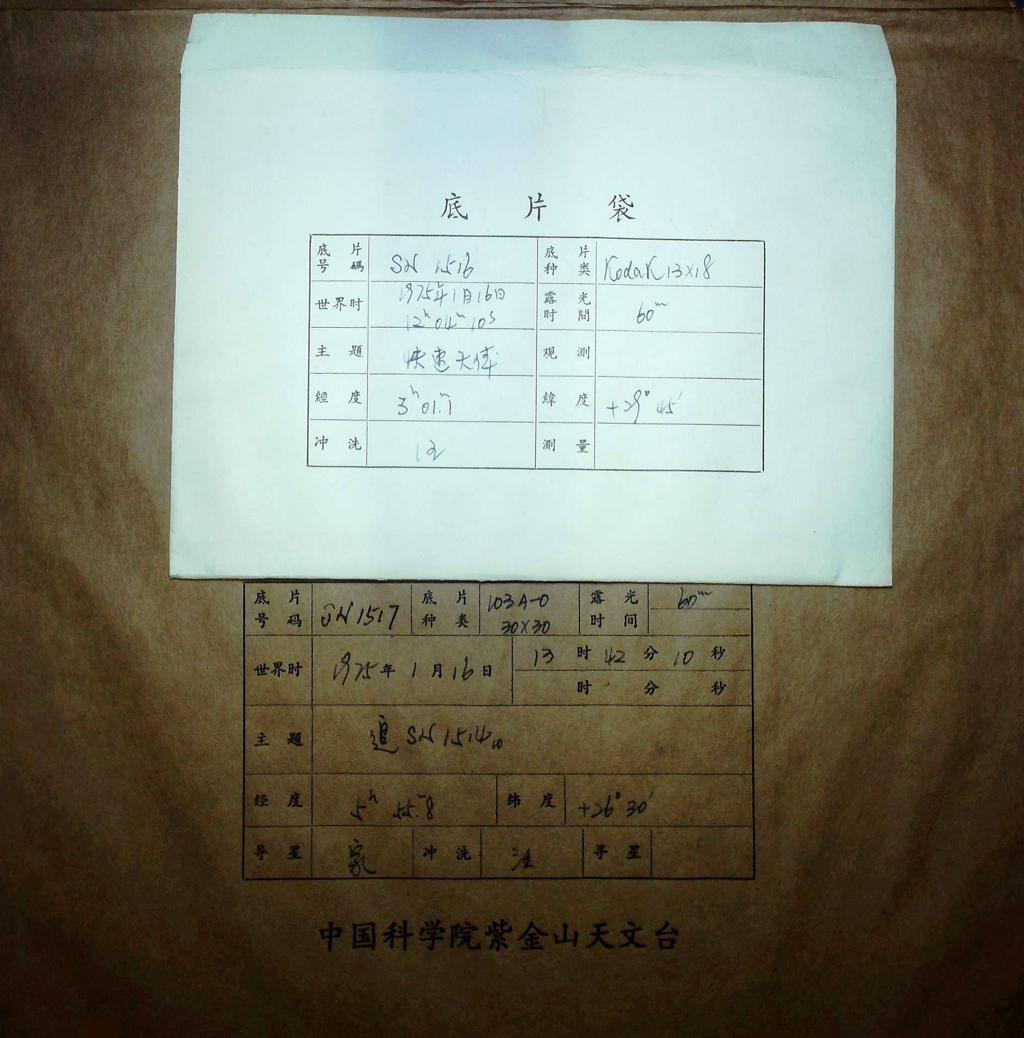 底 片 袋
底片号碼 SN 1516 底片种类 Kodak 13×18
世界时 1975年1月16日 12ʰ 04ᵐ 10ˢ 露光时間 60ᵐ
主題 快速天体 观測
經度 3ʰ 01.ᵐ1 緯度 +29° 45′
冲洗 测量
底片号码 SN 1517 底片种类 103A-O 30×30 露光时间 60ᵐ
世界时 1975年 1月 16日 13时 42分 10秒
时 分 秒
主题 追 SN 1514
经度 5ʰ 55.ᵐ8 纬度 +26° 30′
导星 家 冲洗 寻星
中国科学院紫金山天文台